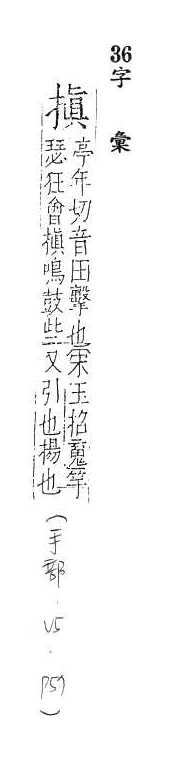 36字 彙
搷
亭年切音田擊也宋玉招魂竽
瑟狂會搷鳴鼓些又引也揚也
(手部．V5．P59)